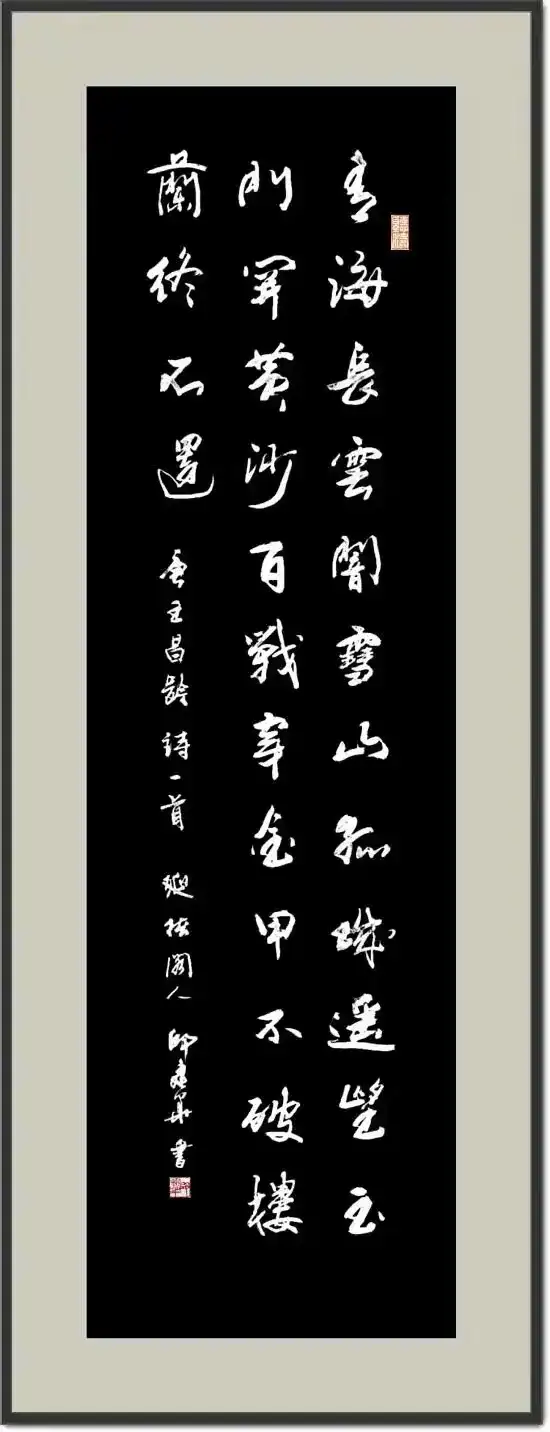 青海長雲闇雪山孤城遥望玉
門関黄沙百戰穿金甲不破樓
蘭終不還 唐王昌齡詩一首 閣人 書